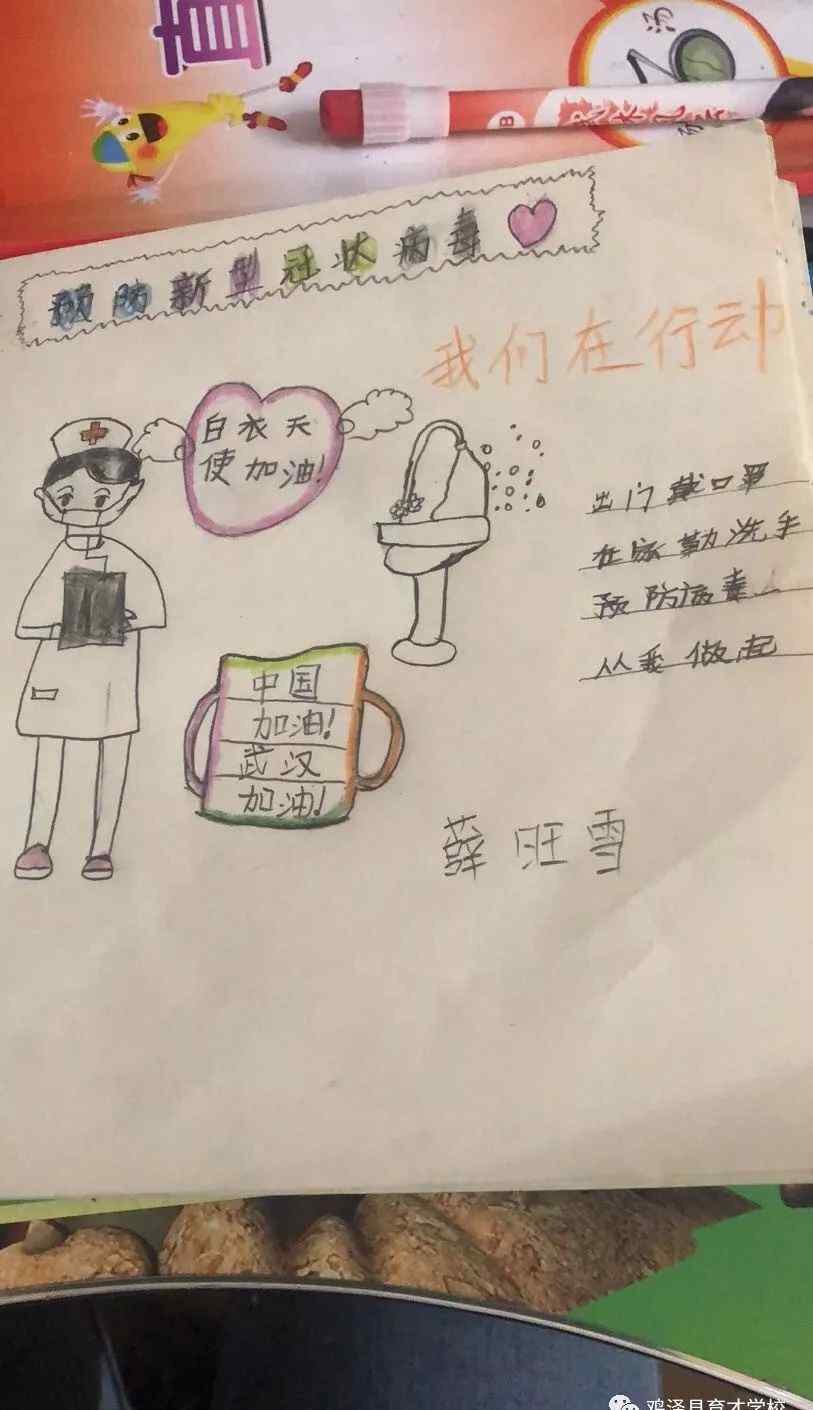 直
汤
预防新型冠状病毒
我们在行动
白衣天
使加油!
出门戴口罩
在家勤洗手
预防病毒
从我做起
中国
加油!
武汉
加油!
薛旺雪
鸡泽县育才学校